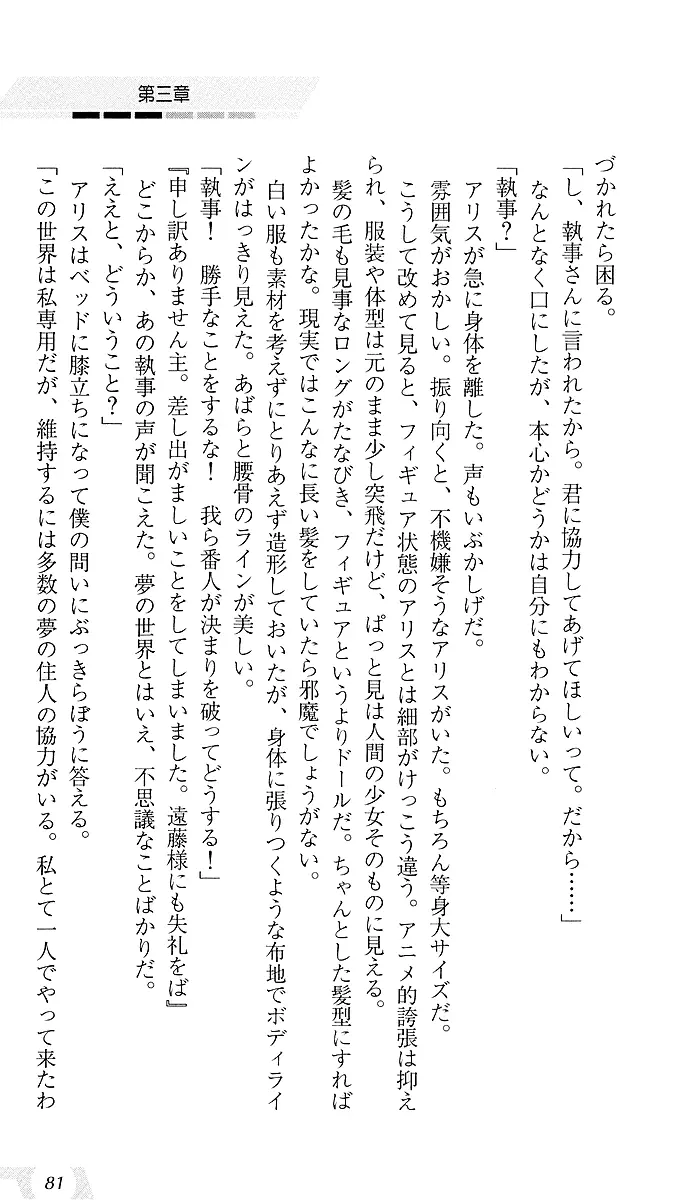 第三章
づかれたら困る。
「し、執事さんに言われたから。君に協力してあげてほしいって。だから……」
なんとなく口にしたが、本心かどうかは自分にもわからない。
「執事？」
アリスが急に身体を離した。声もいぶかしげだ。
雰囲気がおかしい。振り向くと、不機嫌そうなアリスがいた。もちろん等身大サイズだ。
こうして改めて見ると、フィギュア状態のアリスとは細部がけっこう違う。アニメ的誇張は抑え
られ、服装や体型は元のまま少し突飛だけど、ぱっと見は人間の少女そのものに見える。
髪の毛も見事なロングがたなびき、フィギュアというよりドールだ。ちゃんとした髪型にすれば
よかったかな。現実ではこんなに長い髪をしていたら邪魔でしょうがない。
白い服も素材を考えずにとりあえず造形しておいたが、身体に張りつくような布地でボディライ
ンがはっきり見えた。あばらと腰骨のラインが美しい。
「執事！　勝手なことをするな！　我ら番人が決まりを破ってどうする！」
『申し訳ありません主。差し出がましいことをしてしまいました。遠藤様にも失礼をば』
どこからか、あの執事の声が聞こえた。夢の世界とはいえ、不思議なことばかりだ。
「ええと、どういうこと？」
アリスはベッドに膝立ちになって僕の問いにぶっきらぼうに答える。
「この世界は私専用だが、維持するには多数の夢の住人の協力がいる。私とて一人でやって来たわ
81